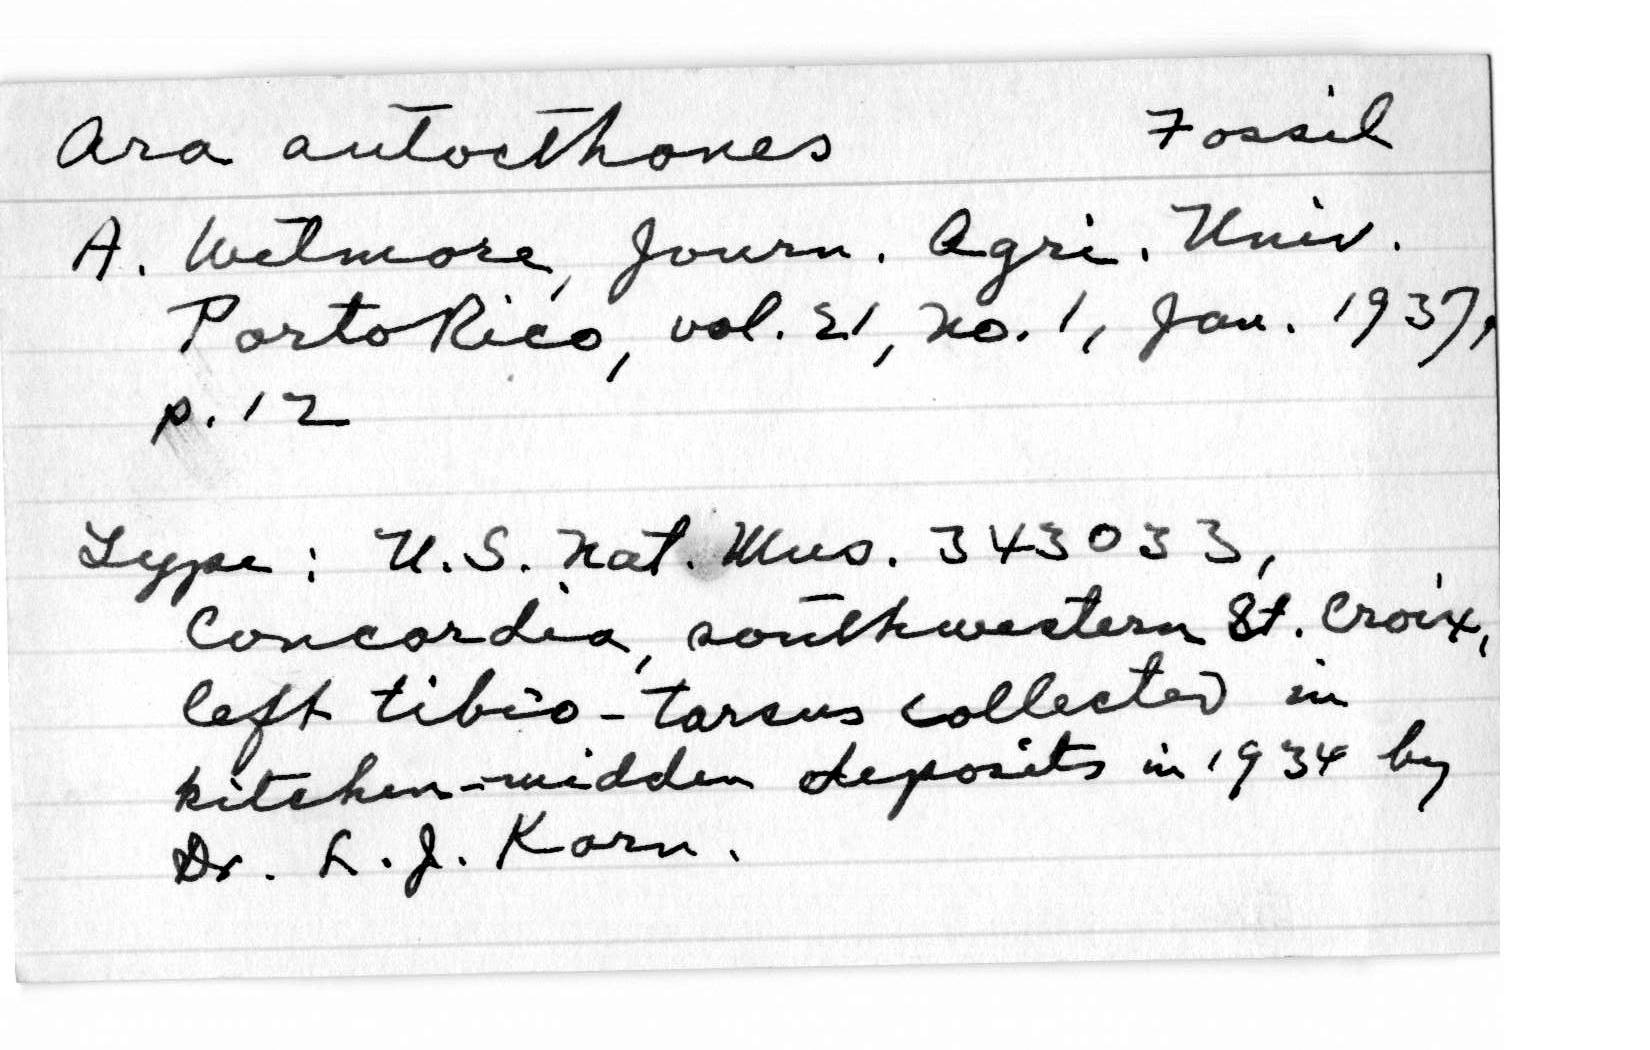 Ara autocthones Fossil
A. Wetmore, Journ. Agri. Univ.
Porto Rico, vol. 21, no. 1, Jan. 1937,
p. 12
Type: U.S. Nat. Mus. 343033,
Concordia, southwestern St. Croix,
left tibio-tarsus collected in
kitchen-midden deposits in 1934 by
Dr. L. J. Korn.